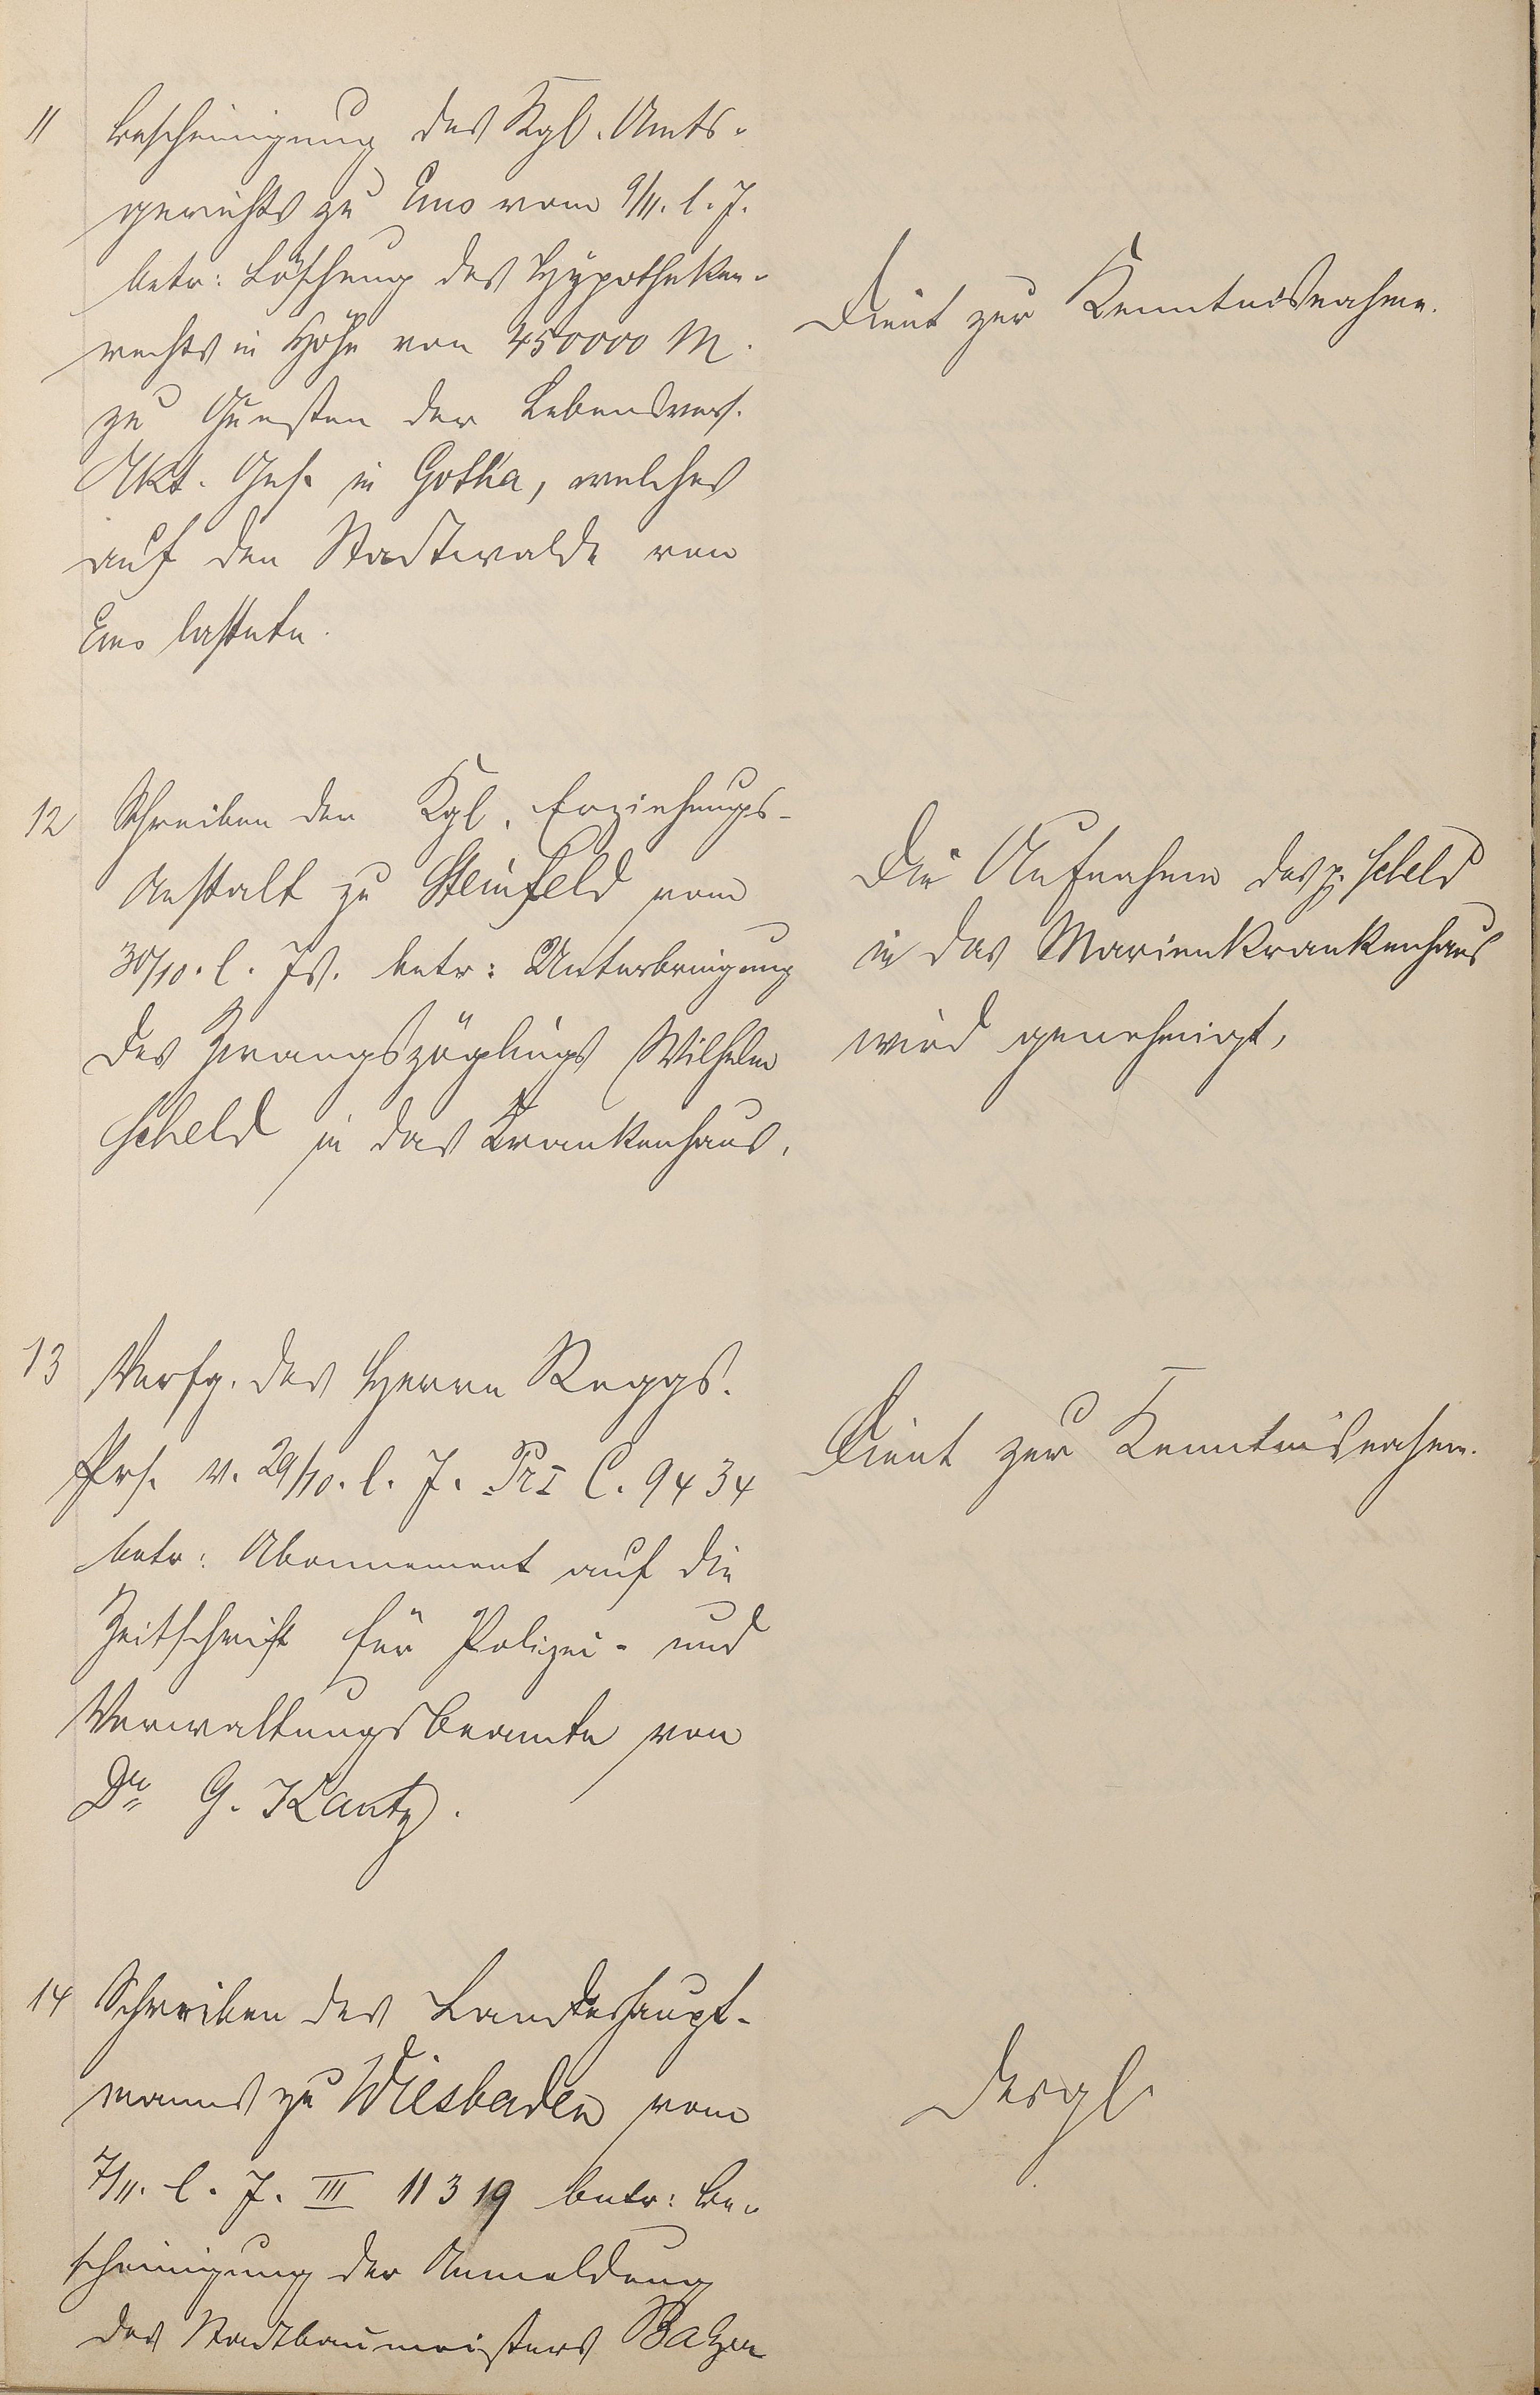 11 Bescheinigung des Kgl. Amts-
gerichts zu Ems vom 9/11. l. J.
betr: Löschung des Hypotheken-
rechts in Höhe von 450000 M.
zu Gunsten der Lebensvers.
Akt. Ges. in Gotha, welches
auf dem Stadtwalde von
Ems lastete.
Dient zur Kenntnisnahme.
12 Schreiben der Kgl. Erziehungs-
Anstalt zu Steinfeld vom
30/10. l. Js. betr: Unterbringung
des Zwangszöglings Wilhelm
Scheld in das Krankenhaus.
Die Aufnahme des p. Scheld
in das Marienkrankenhaus
wird genehmigt.
13 Verfg. des Herrn Reggs.
Prs. v. 29/10. l. J. Pr I C. 9434
betr: Abonnement auf die
Zeitschrift für Polizei- und
Verwaltungsbeamte von
Dr. G. Kautz.
Dient zur Kenntnisnahme.
14 Schreiben des Landeshaupt-
manns zu Wiesbaden vom
7/11. l. J. III 11319 betr: Be-
scheinigung der Anmeldung
des Stadtbaumeisters Balzer
desgl.